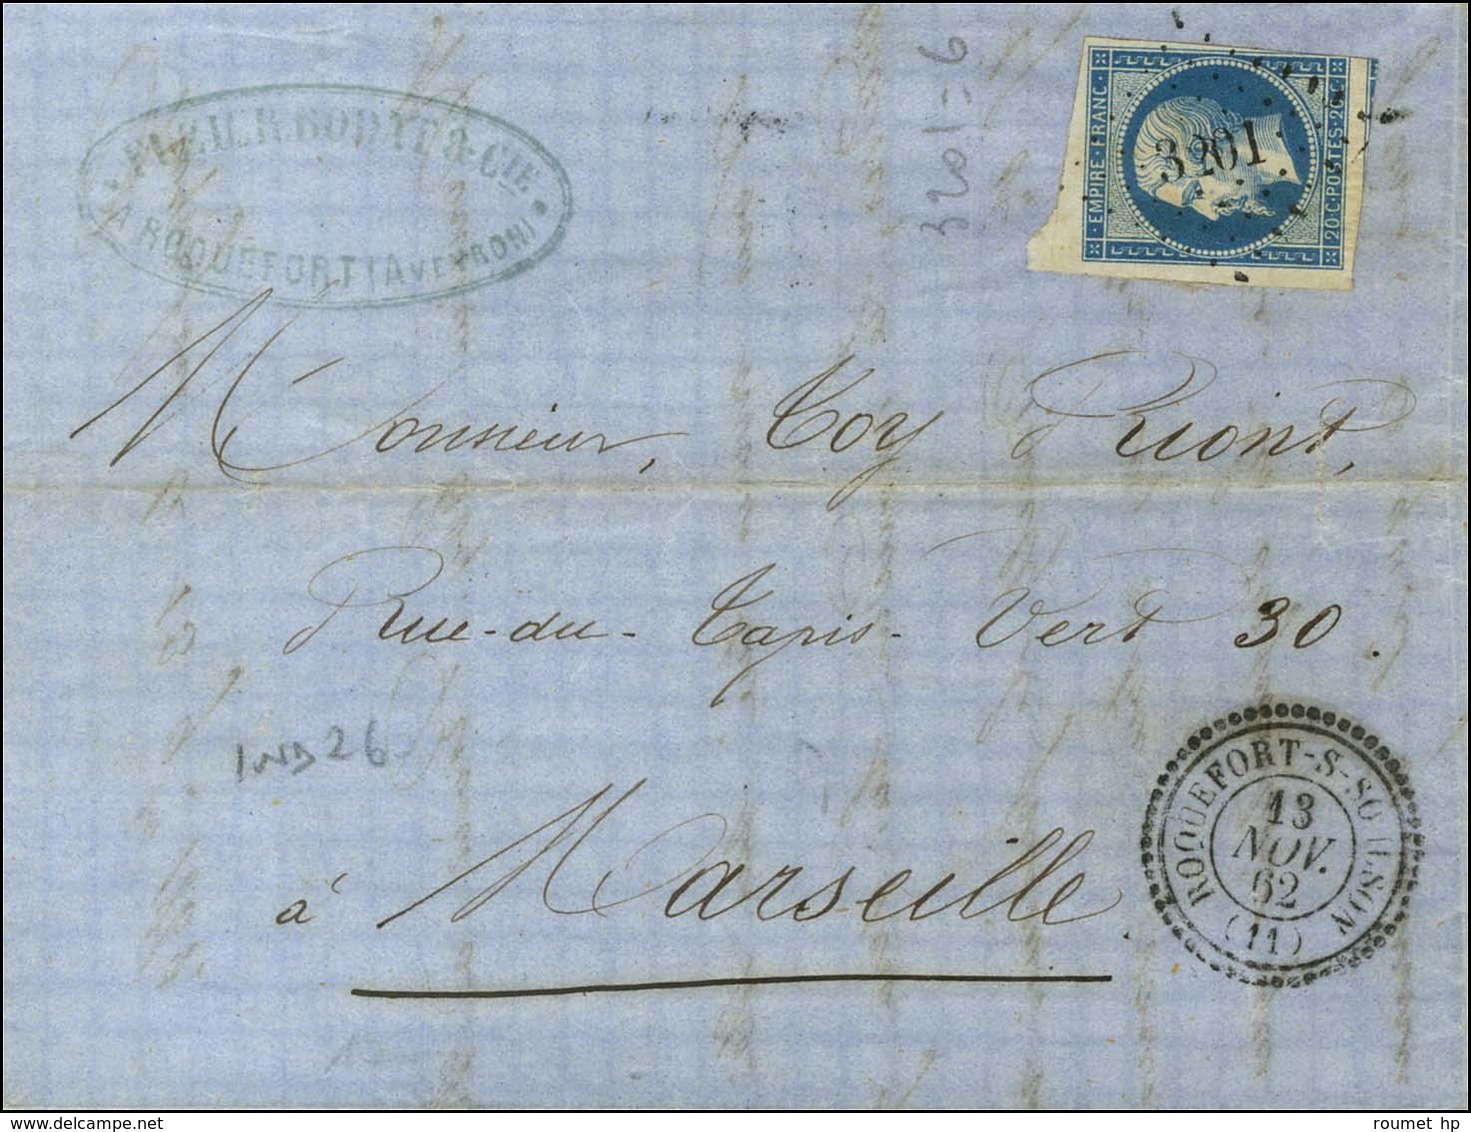 & Cie
A ROQUEFORT (AVEYRON)
3201=6
EMPIRE · FRANC ·
3201
20 · C · POSTES · 20 · C
Monsieur, Toy Riont,
Rue-du-Tapis-Vert 30.
IND 26
à Marseille.
ROQUEFORT-S-SOULSON
13
NOV.
62
(11)
roumet hp